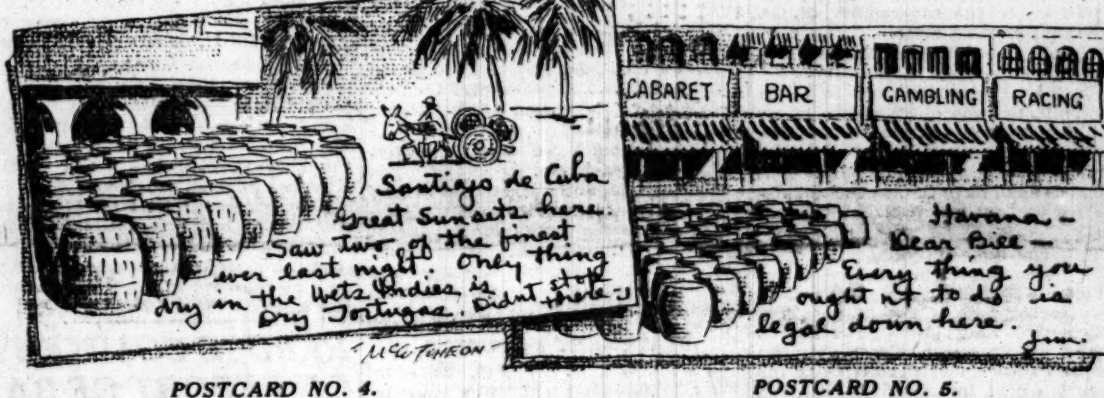 Santiago de Cuba
Great Sunsets here.
Saw two of the finest
ever last night. Only thing
dry in the Wets Indies is
Dry Tortugas. Didnt stop
there - J
McCUTCHEON
POSTCARD NO. 4.
CABARET
BAR
GAMBLING
RACING
Havana -
Dear Bill -
Every thing you
ought nt to do is
legal down here.
Jim.
POSTCARD NO. 5.